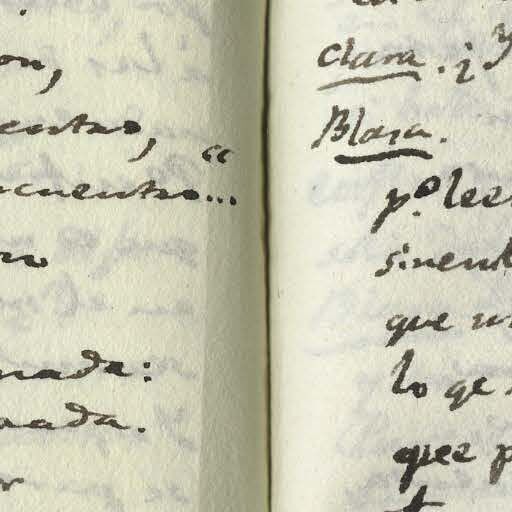 on,
entro,
cuentro... "
nada:
Clara. ¡Y
Blasa.
p.º leer
sinent
que un
lo qe
qee p